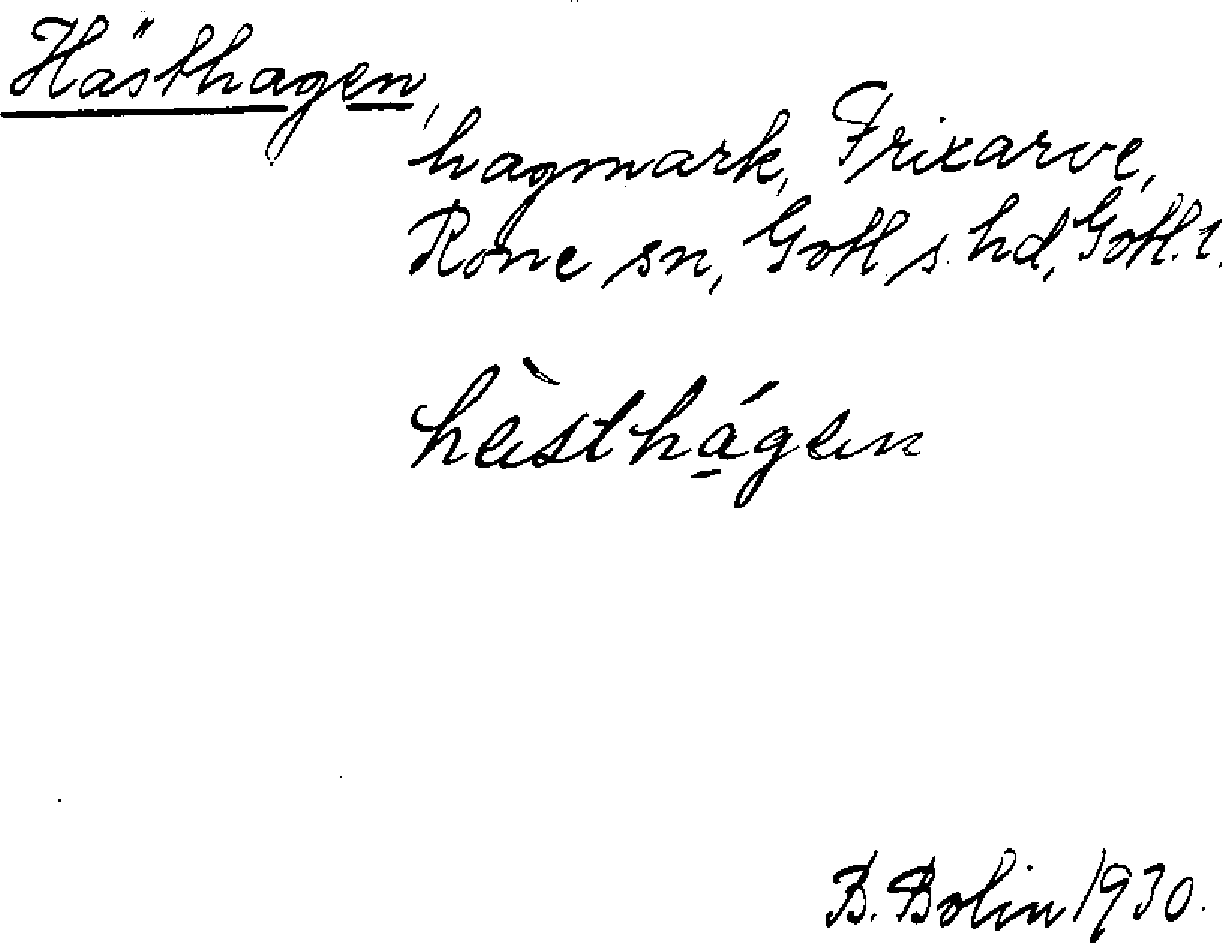 Hästhagen,
hagmark, Frixarve,
Rone sn, Gotl s. hd, Gotl. l.
hèsthá̱gen
B. Bolin 1930.